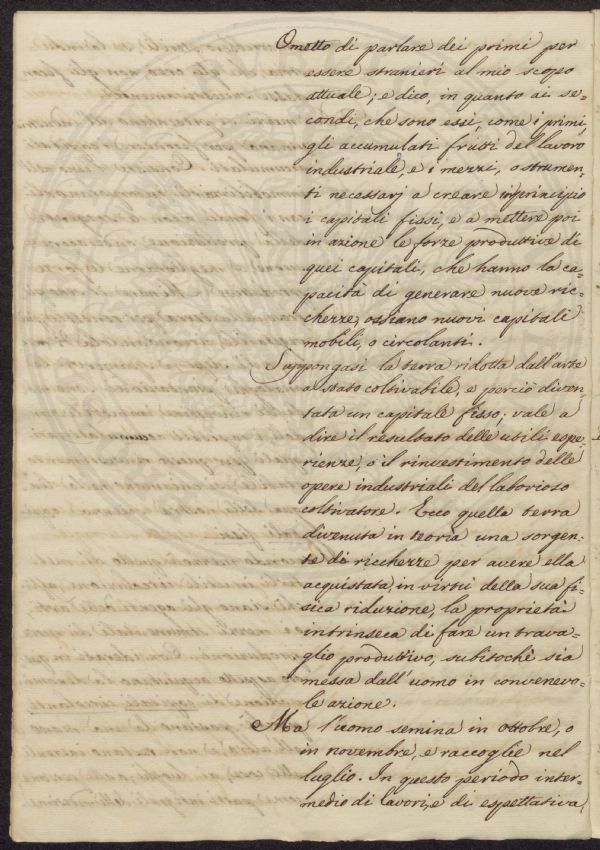 Ometto di parlare dei primi per
essere stranieri al mio scopo
attuale; e dico, in quanto ai se-
condi, che sono essi, come i primi,
gli accumulati frutti del lavoro
industriale, e i mezzi, o strumen-
ti necessarj a creare in principio
i capitali fissi, e a mettere poi
in azione le forze produttive di
quei capitali, che hanno la ca-
pacità di generare nuove ric-
chezze, ossiano nuovi capitali
mobili, o circolanti.
Suppongasi la terra ridotta dall'arte
a stato coltivabile, e perciò diven-
tata un capitale fisso; vale a
dire il resultato delle utili espe-
rienze, o il rinvestimento delle
opere industriali del laborioso
coltivatore. Ecco quella terra
divenuta in teoria una sorgen-
te di ricchezze per avere ella
acquistata, in virtù della sua fi-
sica riduzione, la proprietà
intrinseca di fare un trava-
glio produttivo, subitochè sia
messa dall'uomo in convenevo-
le azione.
Ma l'uomo semina in ottobre, o
in novembre, e raccoglie nel
luglio. In questo periodo inter-
medio di lavori, e di espettativa,